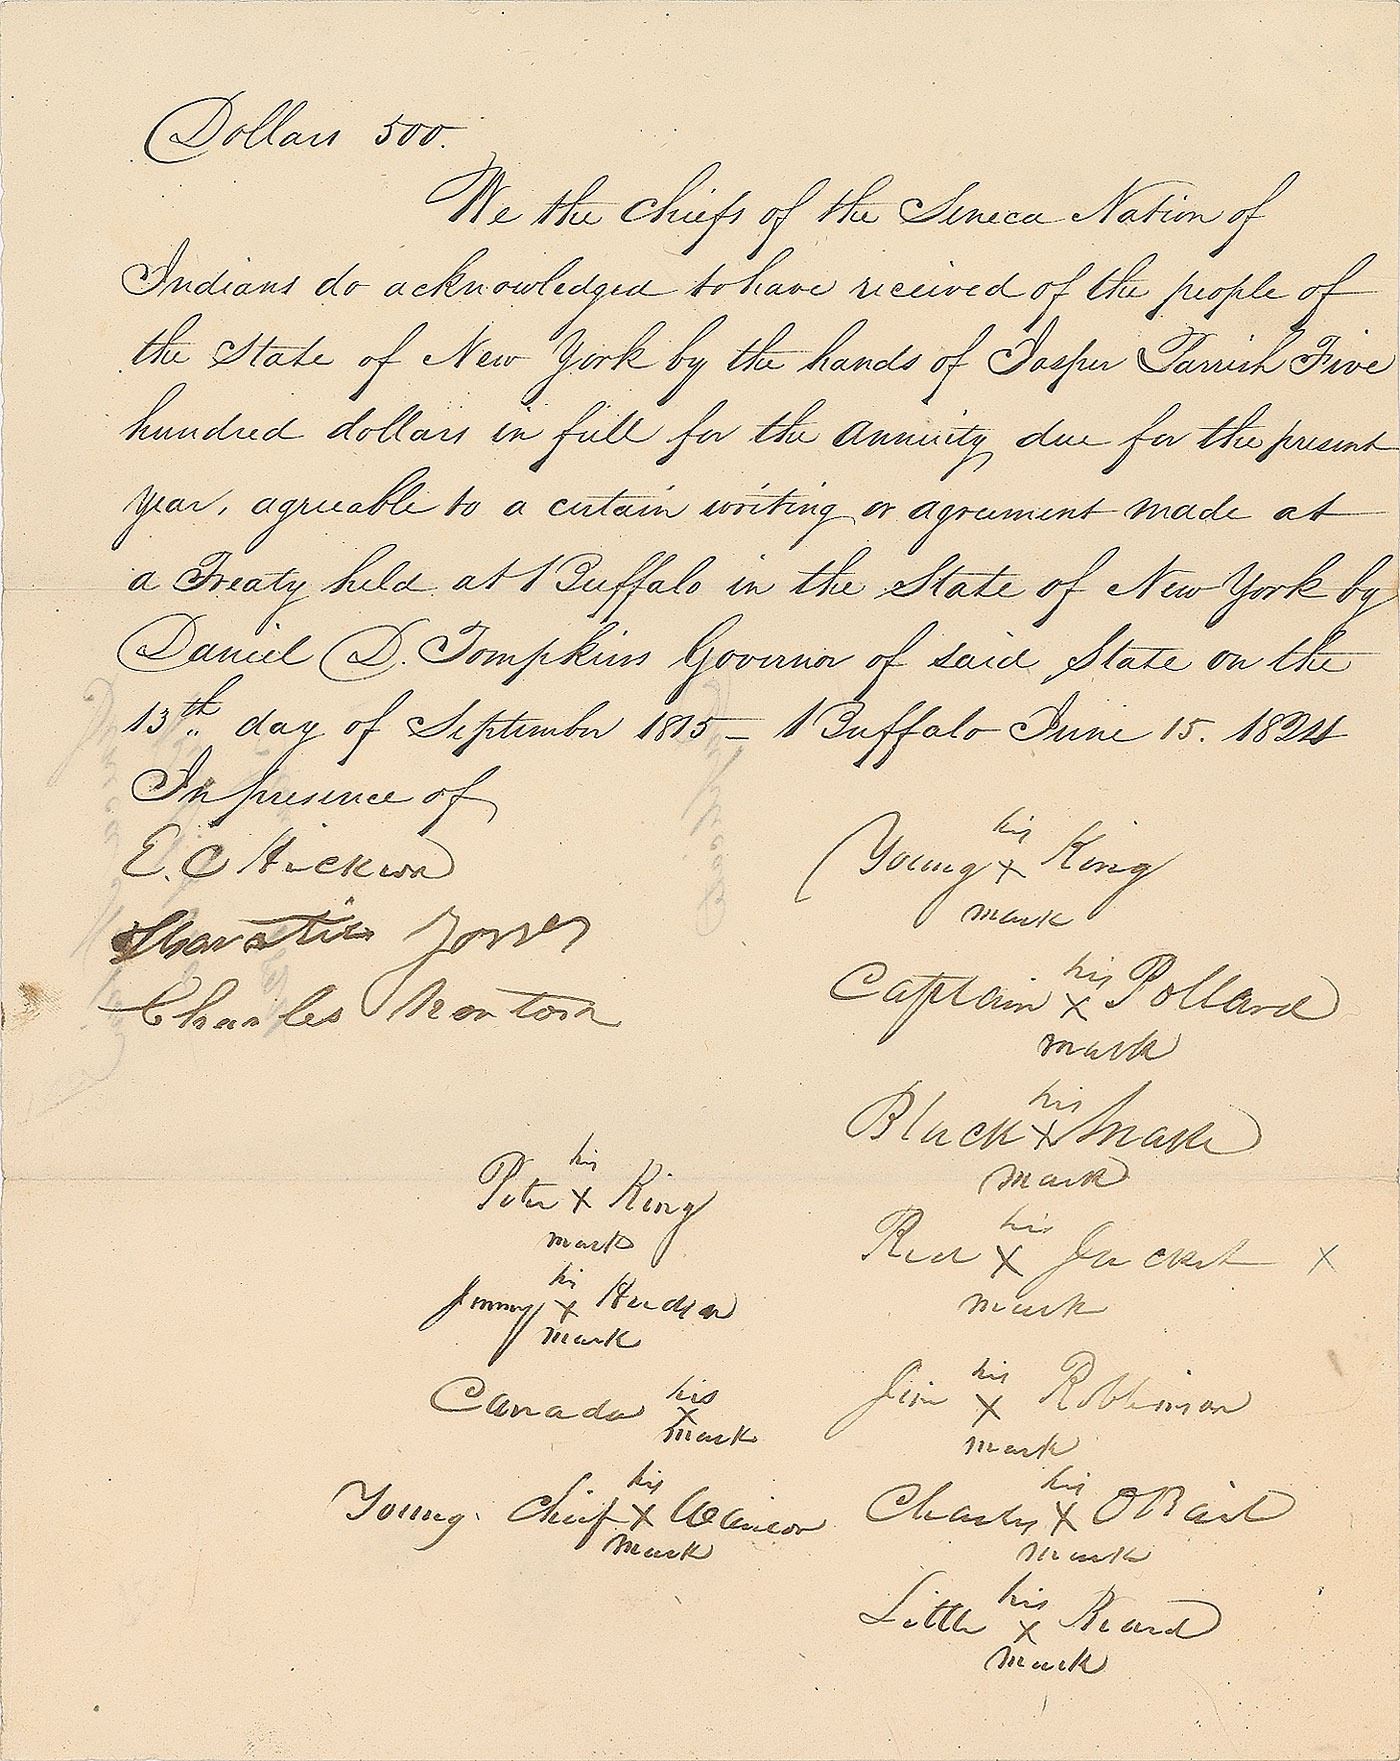 Dollars 500.
We the chiefs of the Seneca Nation of
Indians do acknowledged to have received of the people of
the State of New York by the hands of Jasper Parrish Five
hundred dollars in full for the annuity due for the present
year, agreeable to a certain writing or agreement made at
a Treaty held at Buffalo in the State of New York by
Daniel D. Tompkins Governor of said State on the
13th day of September 1815 – Buffalo June 15. 1824
In presence of
E. C Hickox
Horatio Jones
Charles Newton
his
Young x King
mark
his
Captain x Pollard
mark
his
Black x Snake
mark
his
Red x Jacket x
mark
his
Jim x Robinson
mark
his
Charles x OBail
mark
his
Little x Beard
mark
his
Peter x King
mark
his
Jimmy x Hudson
mark
his
Canada x
mark
his
Young chief x
mark